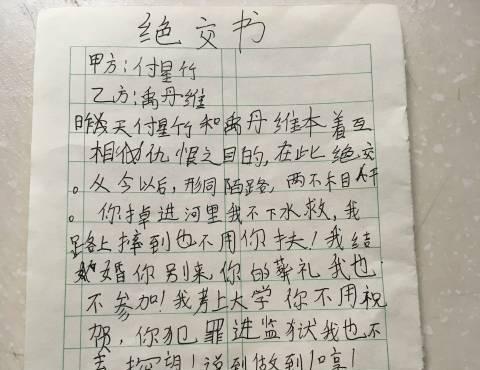 绝交书
甲方:付星竹
乙方:禹丹维
昨天付星竹和禹丹维本着互
相仇恨之目的,在此绝交
。从今以后,形同陌路,两不相干
。你掉进河里我不下水救,我
路上摔到也不用你扶!我结
婚你别来你的葬礼我也
不参加!我考上大学你不用祝
贺,你犯罪进监狱我也不
去探望!说到做到!哼!